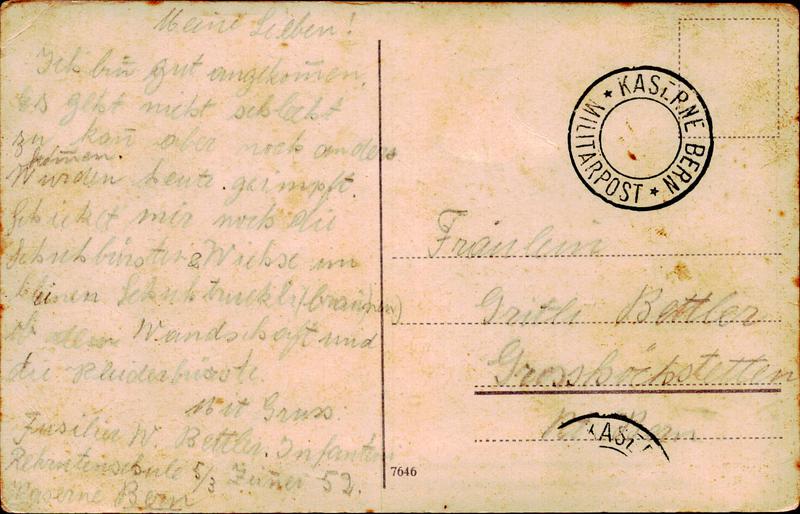 Meine Lieben!
Ich bin gut angekommen.
Es geht nicht schlecht
zu kann aber noch anders
kommen.
Wurden heute geimpft.
Schicket mir noch die
Schuhbürsten & Wichse im
kleinen Schuhtruckli (braunen)
ob dem Wandschaft und
die Kleiderbürste.
Mit Gruss
Füsilier W. Bettler. Infanterie
Rekrutenschule 5/3 Zimmer 52.
Kaserne Bern
KASERNE BERN
MILITÄRPOST
Fräulein
Gritli Bettler
Grosshöchstetten
Bern
KASE
7646